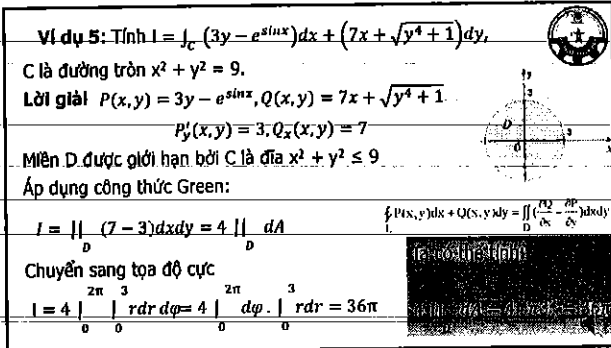 Ví dụ 5: Tính I = ∫_C (3y − e^{sinx})dx + (7x + √(y⁴ + 1))dy,
C là đường tròn x² + y² = 9.
Lời giải P(x, y) = 3y − e^{sinx}, Q(x, y) = 7x + √(y⁴ + 1)
P'_y(x, y) = 3, Q_x(x, y) = 7
Miền D được giới hạn bởi C là đĩa x² + y² ≤ 9
Áp dụng công thức Green:
I = ∬_D (7 − 3)dxdy = 4 ∬_D dA
∮_L P(x, y)dx + Q(x, y)dy = ∬_D (∂Q/∂x − ∂P/∂y)dxdy
Chuyển sang tọa độ cực
I = 4 ∫_0^{2π} ∫_0^3 rdr dφ = 4 ∫_0^{2π} dφ . ∫_0^3 rdr = 36π
y
3
D
0
3
x
Ta có thể tính